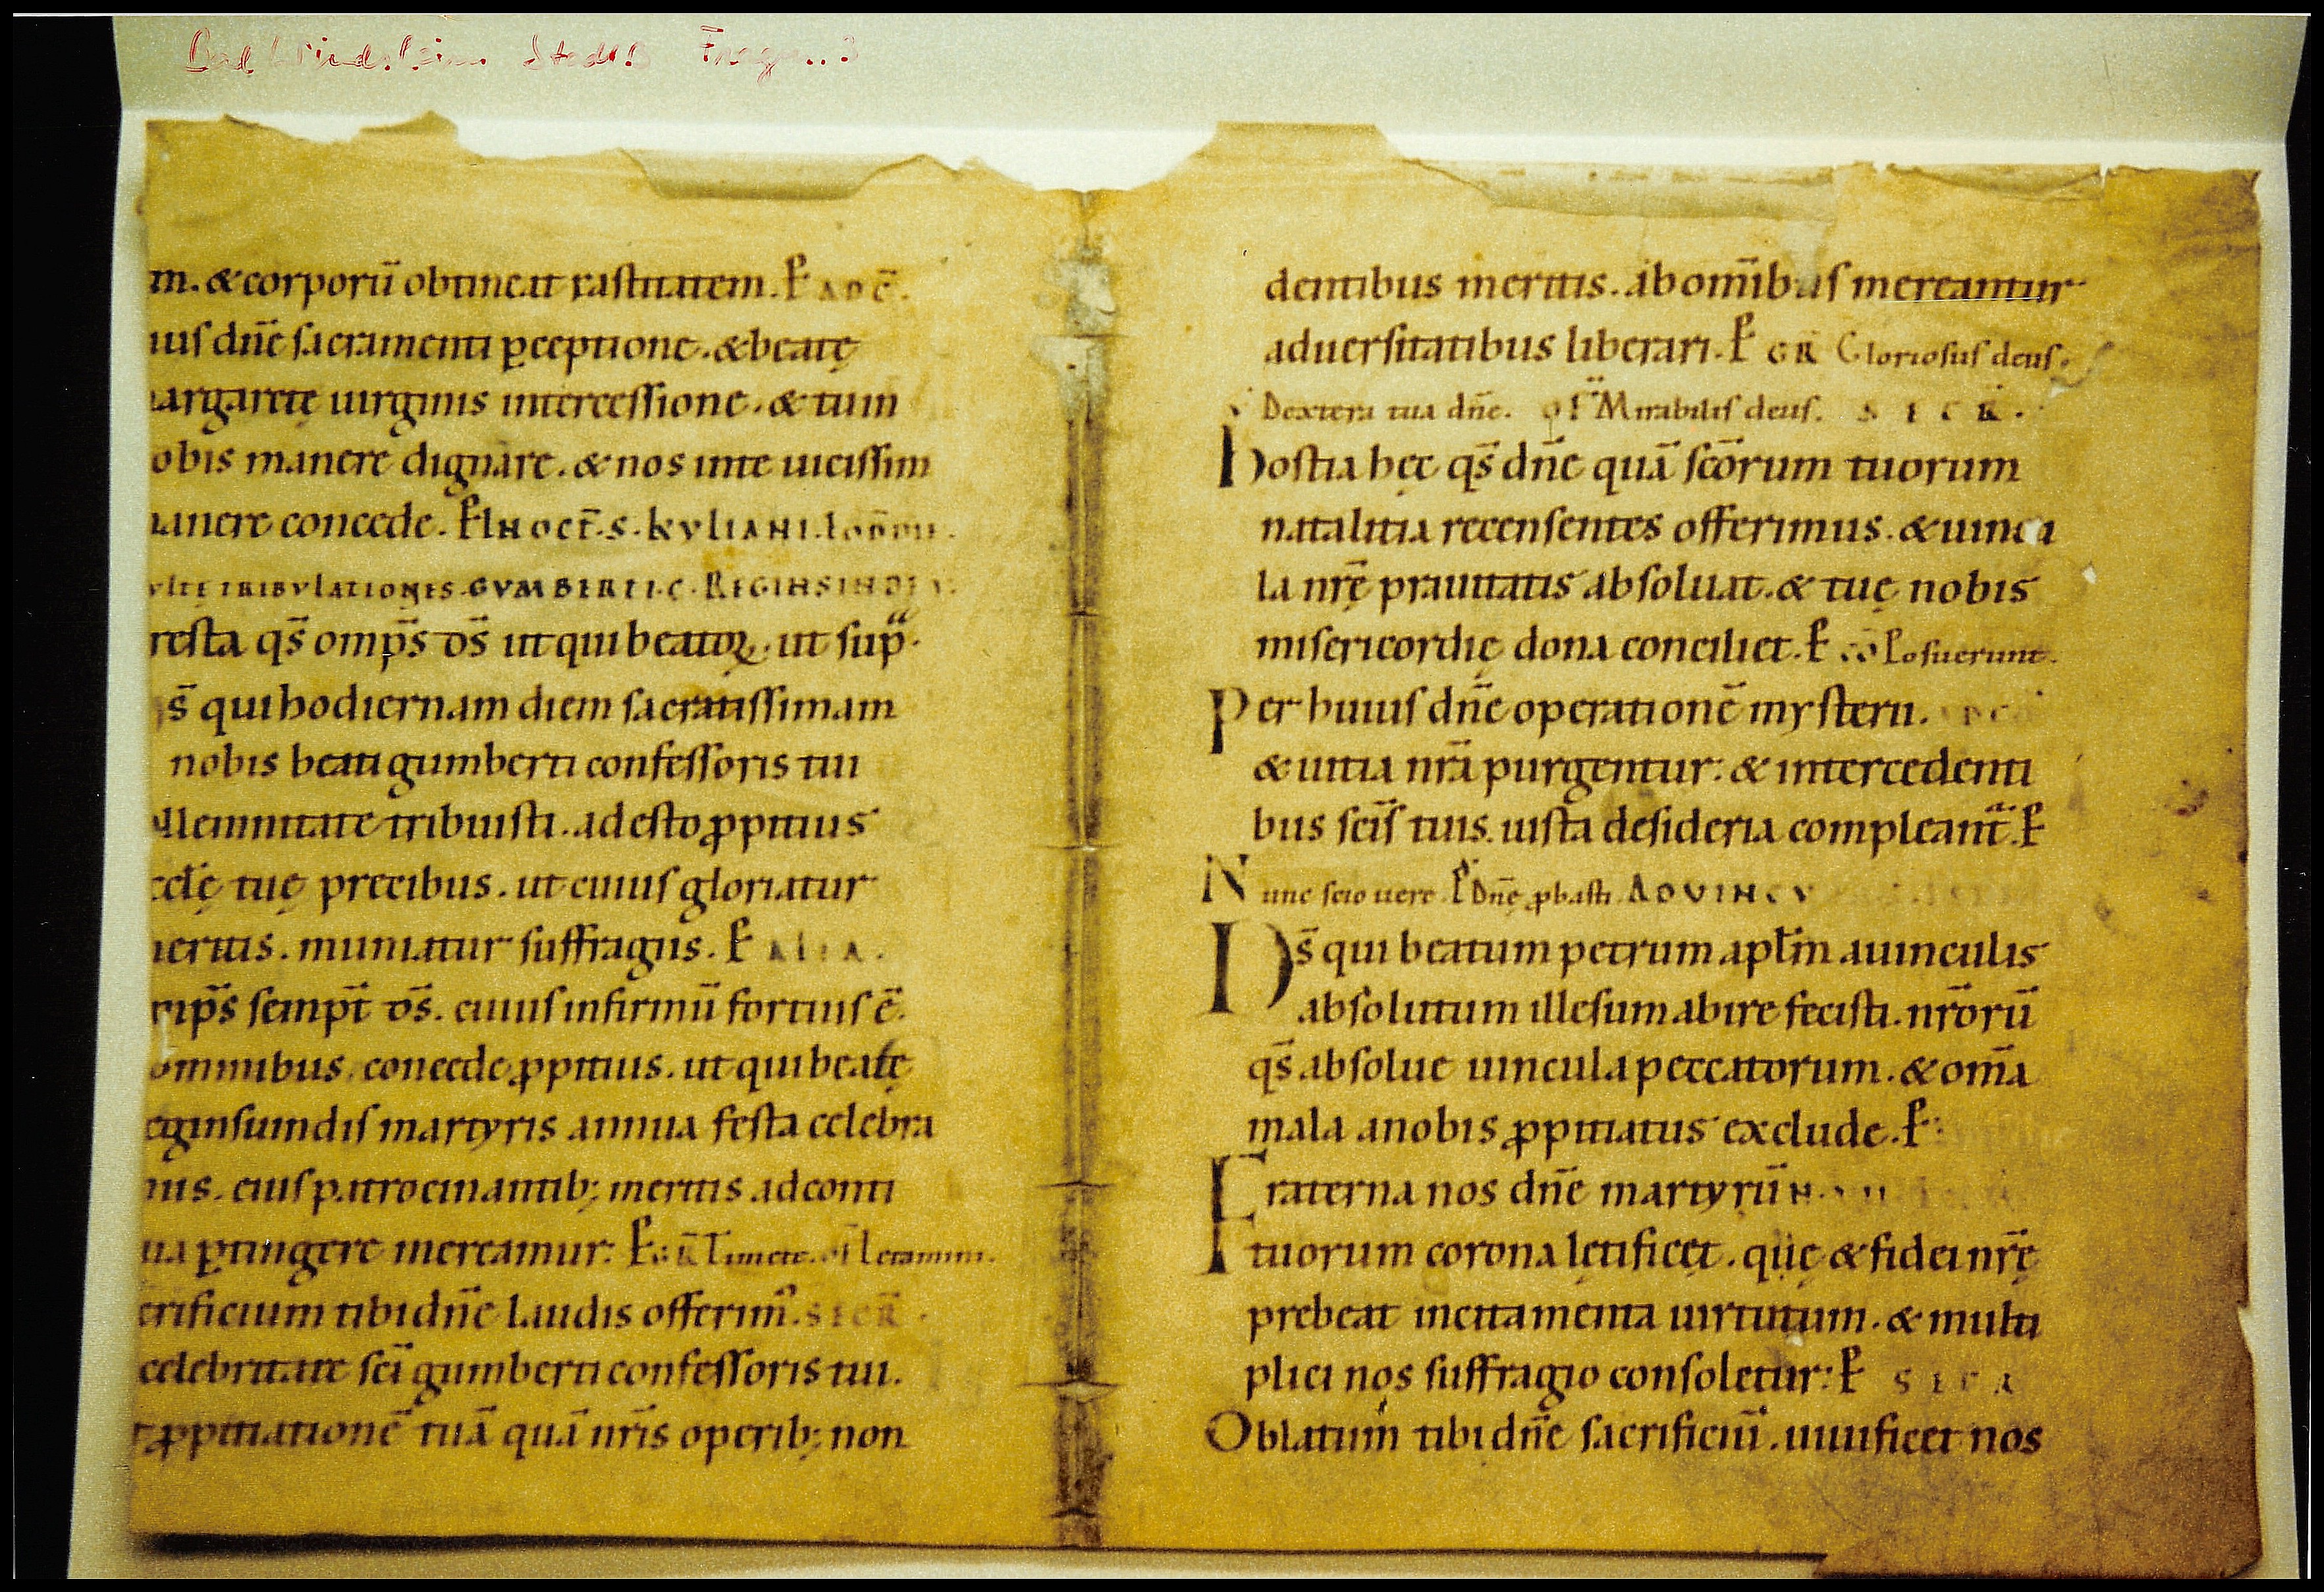 Bad Windsheim StadtB Fragm. 3
m. & corporū obtineat castitatem. P̄ AD C̄.
ius dn̄e sacramenti ꝑceptione. & beatę
argaretę uirginis intercessione. & tu in
obis manere dignare. & nos inte uicissim
anere concede. P̄ IN OCT̄. S. KYLIANI.
VLTĘ TRIBVLATIONES. GVMBERTI. C. REGINSINDI
resta qs̄ omp̄s ds̄ ut qui beatoꝝ. ut sup̄.
s̄ qui hodiernam diem sacratissimam
nobis beati gumberti confessoris tui
llemnitate tribuisti. adesto ꝓpitius
ccl̄ę tuę precibus. ut cuius gloriatur
eritis. muniatur suffragiis. P̄ ALIA.
mp̄s semp̄t ds̄. cuius infirmū fortius ē.
ominibus, concede ꝓpitius. ut qui beatę
eginsuindis martyris annua festa celebra
us. eius patrocinantib; meritis adconti
ua ꝑtingere mereamur: P̄ GR̄ Timete. of Letamini.
crificium tibi dn̄e laudis offerim᾿. SECR̄.
celebritate sc̄i gumberti confessoris tui.
t ꝓpitiationē tuā quā nr̄is operib; non
dentibus meritis. ab om̄ibus mereantur
aduersitatibus liberari. P̄ GR̄ Gloriosus deus.
Dextera tua dn̄e. of Mirabilis deus. SECR̄.
Hostia hęc qs̄ dn̄e quā sc̄orum tuorum
natalitia recensentes offerimus. & uincu
la nr̄ę prauitatis absoluat. & tuę nobis
misericordię dona conciliet. P̄ cō Posuerunt.
Per huius dn̄e operationē mysterii.
& uitia nr̄a purgentur: & intercedenti
bus sc̄is tuis. iusta desideria compleant̄. P̄
Nunc scio uere. P̄ Dn̄e ꝓbasti. AD VINCV
Ds̄ qui beatum petrum apl̄m auinculis
absolutum illesum abire fecisti. nr̄orū
qs̄ absolue uincula peccatorum. & om̄a
mala anobis ꝓpitiatus exclude. P̄
Fraterna nos dn̄e martyrū
tuorum corona lętificet. quę & fidei nr̄ę
prebeat incitamenta uirtutum. & multi
plici nos suffragio consoletur: P̄ SECR
Oblatum tibi dn̄e sacrificiū. uiuificet nos